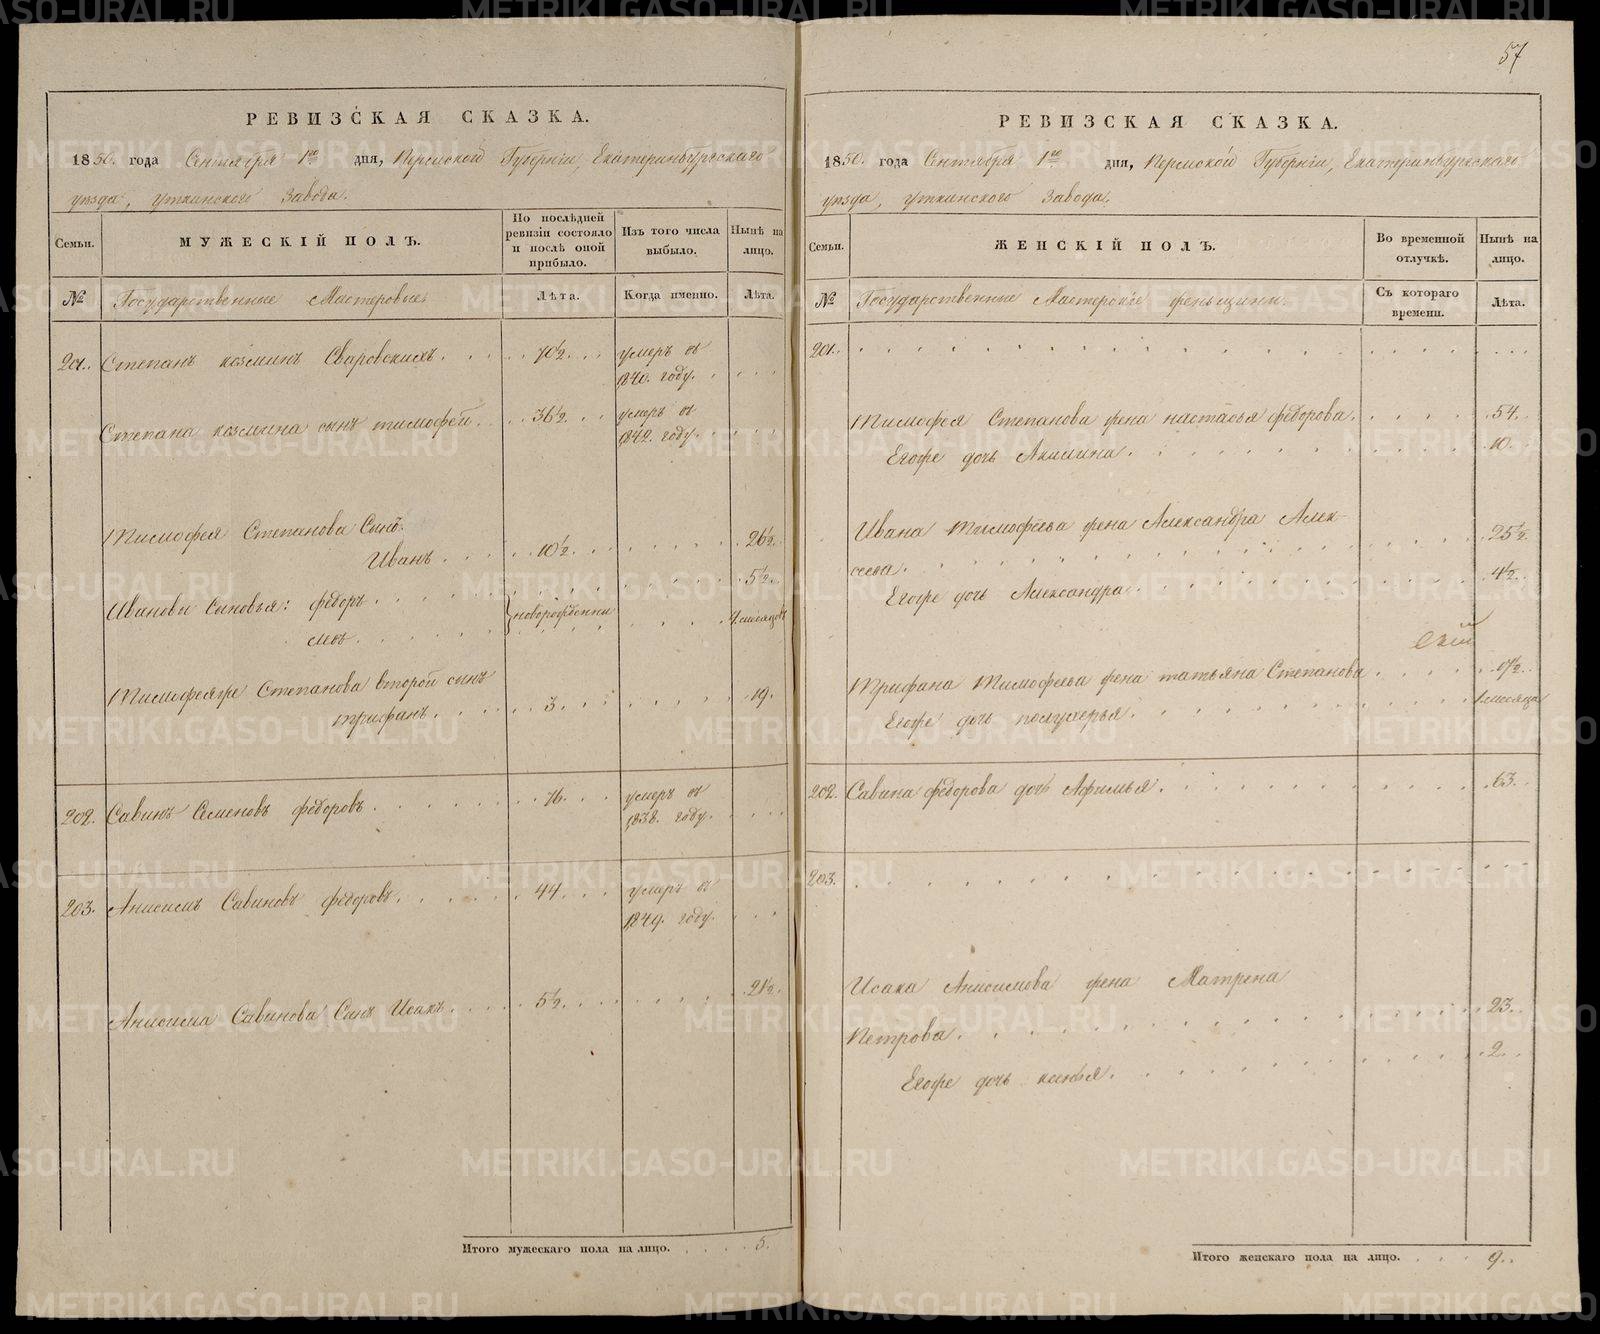 57
РЕВИЗСКАЯ СКАЗКА.
1850. года Сентября 1го дня, Пермской Губерніи, Екатеринбургскаго
уѣзда, Уткинского Завода.
Семьи.
МУЖЕСКІЙ ПОЛЪ.
По послѣдней
ревизіи состояло
и послѣ оной
прибыло.
Изъ того числа
выбыло.
Нынѣ на
лицо.
№
Государственные Мастеровые
Лѣта.
Когда именно.
Лѣта.
201. Степанъ козминъ Сваровскихъ. 70½. умеръ въ
1840. году.
Степана козмина сынъ тимофей. 36½. умеръ въ
1842. году.
Тимофея Степанова Сынъ
Иванъ. 10½. 26½.
Ивановы Сыновья: федоръ 5½.
новорожденны 4 месяцовъ
Тимофеяже Степанова второй сынъ
трифанъ. 3. 19.
202. Савинъ Семеновъ федоровъ. 76. умеръ въ
1838. году.
203. Анисимъ Савиновъ федоровъ. 44. умеръ въ
1849. году.
Анисима Савинова Сынъ Исакъ. 5½. 21½.
Итого мужескаго пола на лицо. 5.
РЕВИЗСКАЯ СКАЗКА.
1850. года Сентября 1го дня, Пермской Губерніи, Екатеринбургскаго
уѣзда, Уткинского Завода.
Семьи.
ЖЕНСКІЙ ПОЛЪ.
Во временной
отлучкѣ.
Нынѣ на
лицо.
№
Государственные Мастерскіе женьщины.
Съ котораго
времени.
Лѣта.
201.
Тимофея Степанова жена настасья федорова. 54.
Егоже дочь Акилина. 10.
Ивана Тимофеева жена Александра Алек-
сеева. 25½.
Егоже дочь Александра. 4½.
Трифана Тимофеева жена татьяна Степанова 17½.
Егоже дочь 1 месяца
202. Савина федорова дочь Афимья. 63.
203.
Исака Анисимова жена Матрена
Петрова. 23.
Егоже дочь ксенья. 2.
Итого женскаго пола на лицо. 9.
METRIKI.GASO-URAL.RU